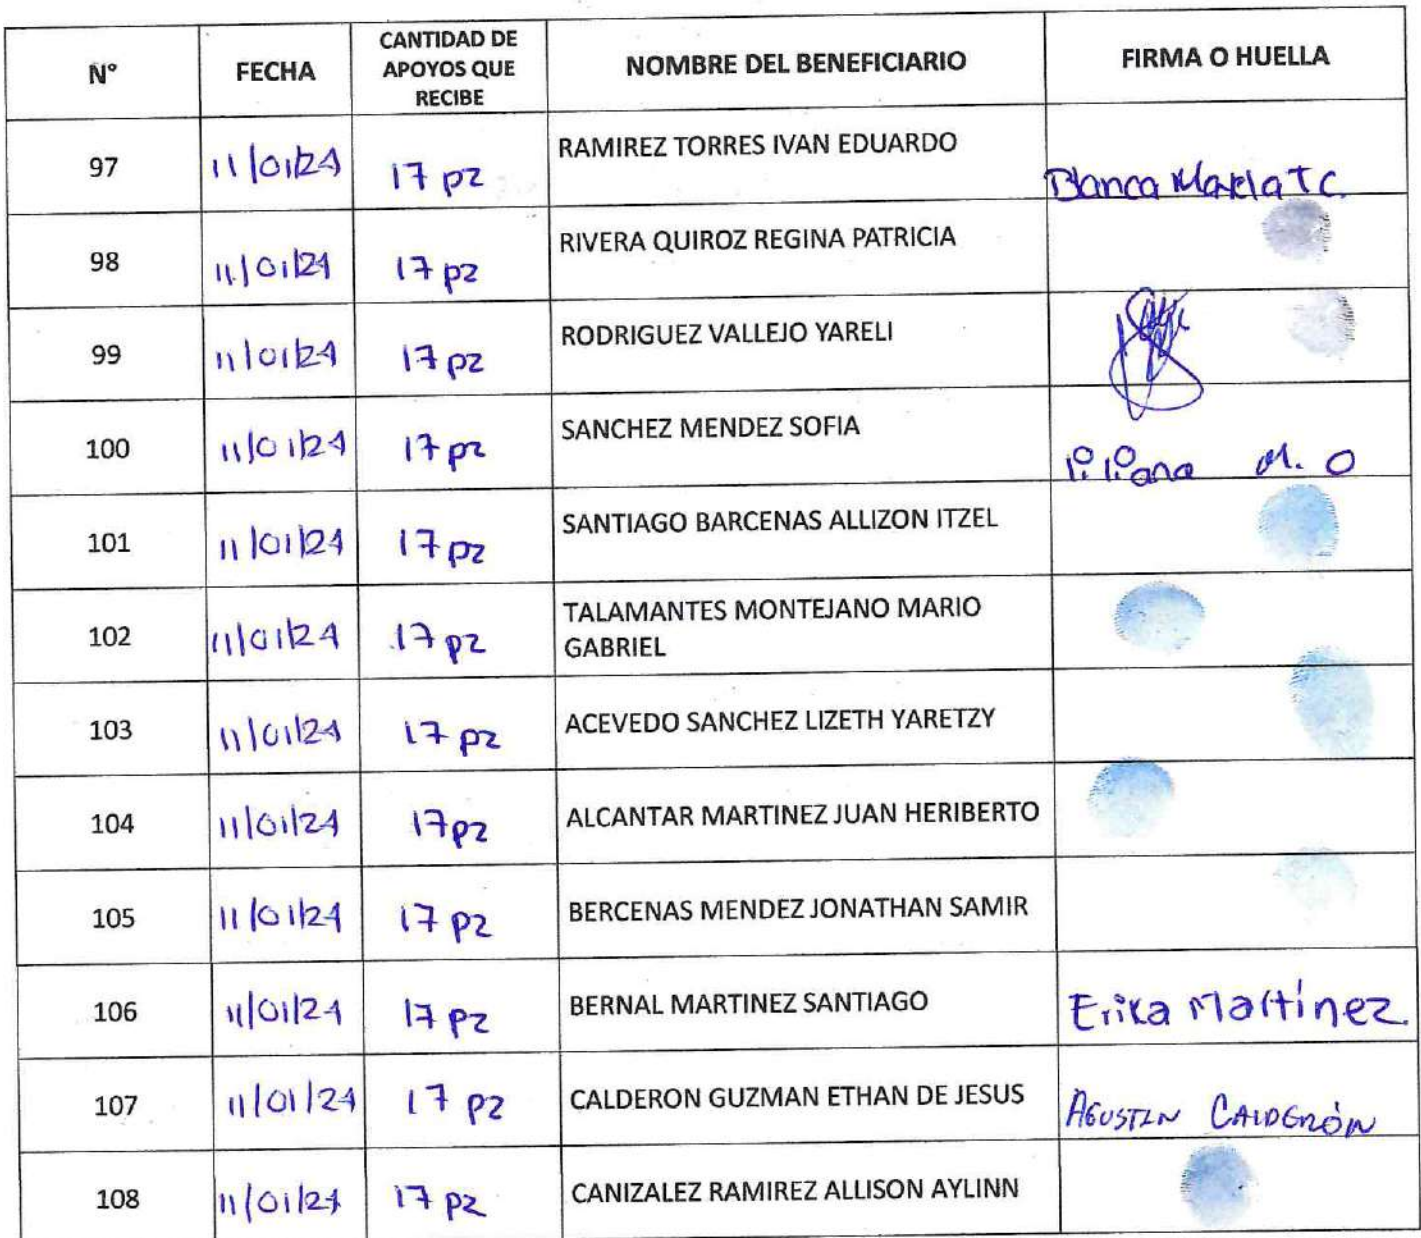 N° FECHA CANTIDAD DE APOYOS QUE RECIBE NOMBRE DEL BENEFICIARIO FIRMA O HUELLA
97 11/01/24 17 pz RAMIREZ TORRES IVAN EDUARDO Blanca Maria T C.
98 11/01/24 17 pz RIVERA QUIROZ REGINA PATRICIA
99 11/01/24 17 pz RODRIGUEZ VALLEJO YARELI
100 11/01/24 17 pz SANCHEZ MENDEZ SOFIA liliana M. O
101 11/01/24 17 pz SANTIAGO BARCENAS ALLIZON ITZEL
102 11/01/24 17 pz TALAMANTES MONTEJANO MARIO
GABRIEL
103 11/01/24 17 pz ACEVEDO SANCHEZ LIZETH YARETZY
104 11/01/24 17 pz ALCANTAR MARTINEZ JUAN HERIBERTO
105 11/01/24 17 pz BERCENAS MENDEZ JONATHAN SAMIR
106 11/01/24 17 pz BERNAL MARTINEZ SANTIAGO Erika Martínez
107 11/01/24 17 pz CALDERON GUZMAN ETHAN DE JESUS AGUSTIN CALDERÓN
108 11/01/24 17 pz CANIZALEZ RAMIREZ ALLISON AYLINN